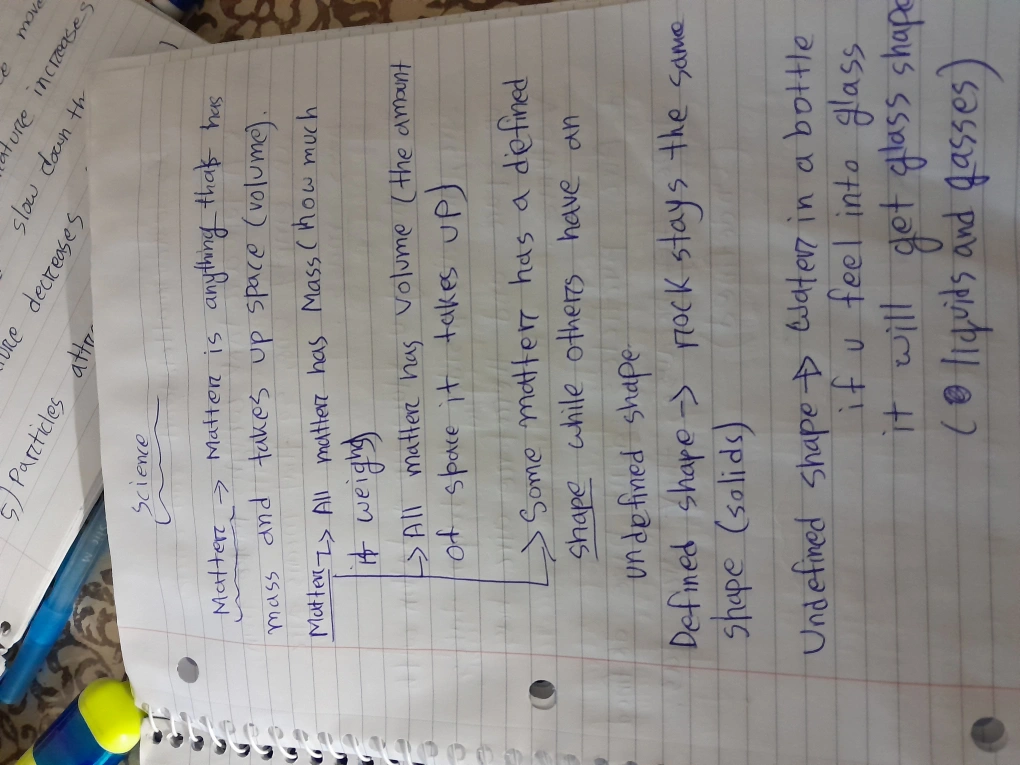 move
ature increases
slow down th
ture decreases
5) Particles attra
Science
Matter → Matter is anything that has
mass and takes up space (volume).
Matter → All matter has Mass (how much
it weighs)
→ All matter has volume (the amount
of space it takes up)
→ Some matter has a defined
shape while others have an
undefined shape.
Defined shape → rock stays the same
shape (solids)
Undefined shape → water in a bottle
if u feel into glass
it will get glass shape
(liquids and gasses)